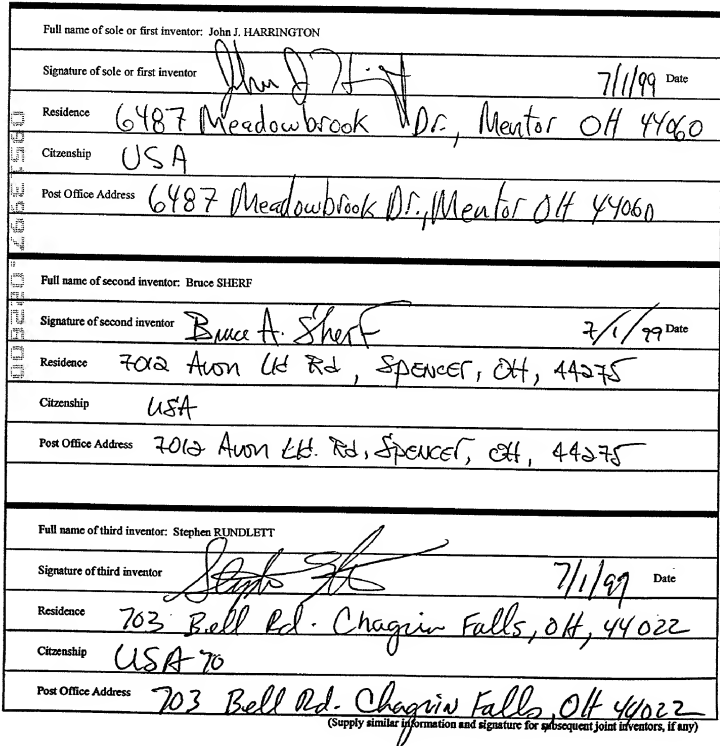 Full name of sole or first inventor: John J. HARRINGTON
Signature of sole or first inventor John J 7/1/99 Date
Residence 6487 Meadowbrook Dr., Mentor OH 44060
Citzenship USA
Post Office Address 6487 Meadowbrook Dr., Mentor OH 44060
Full name of second inventor: Bruce SHERF
Signature of second inventor Bruce A. Sherf 7/1/99 Date
Residence 7012 Avon Rd, SPENCER, OH, 44275
Citzenship USA
Post Office Address 7012 Avon Rd, SPENCER, OH, 44275
Full name of third inventor: Stephen RUNDLETT
Signature of third inventor 7/1/99 Date
Residence 703 Bell Rd. Chagrin Falls, OH, 44022
Citzenship USA
Post Office Address 703 Bell Rd. Chagrin Falls, OH 44022
(Supply similar information and signature for subsequent joint inventors, if any)